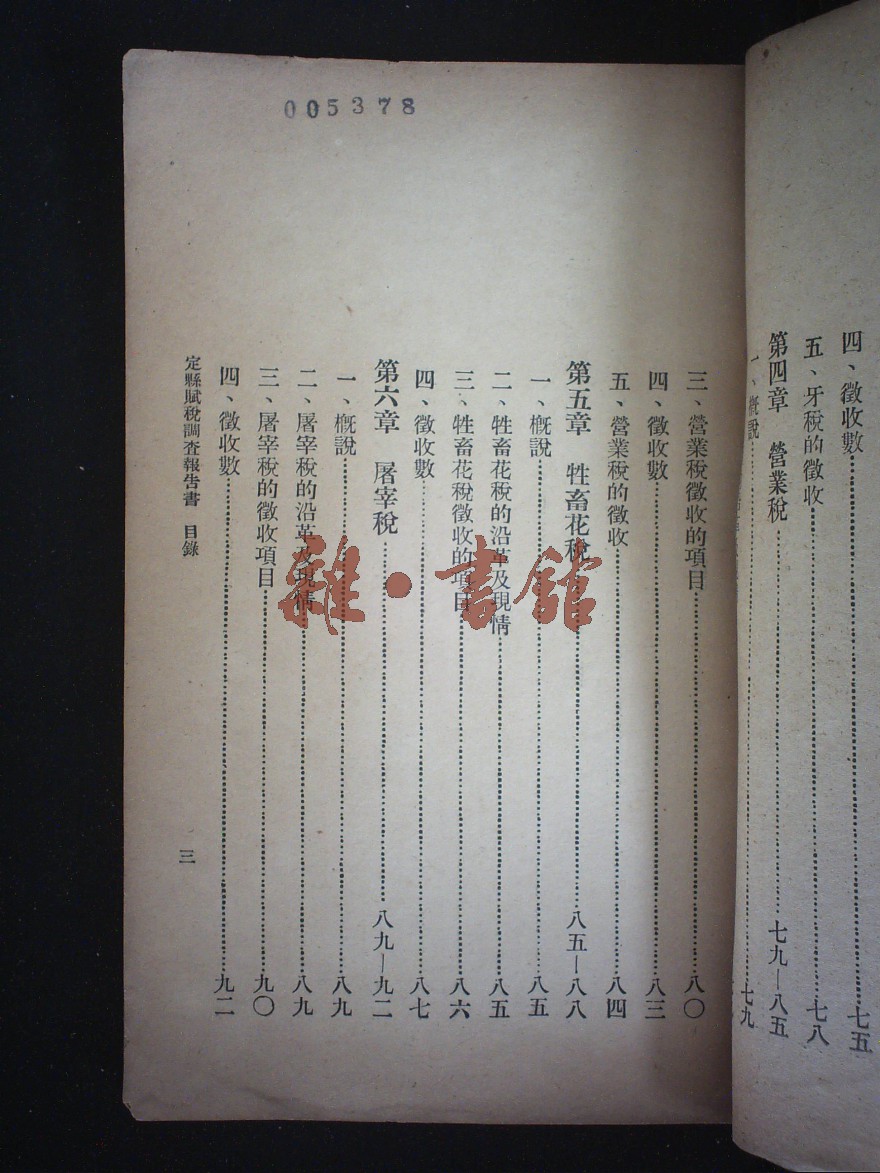 四、徵收數……七五
五、牙稅的徵收……七八
第四章　營業稅……七九—八五
一、概說……七九
005378
三、營業稅徵收的項目……八〇
四、徵收數……八三
五、營業稅的徵收……八四
第五章　牲畜花稅……八五—八八
一、概說……八五
二、牲畜花稅的沿革及現情……八五
三、牲畜花稅徵收的項目……八六
四、徵收數……八七
第六章　屠宰稅……八九—九二
一、概說……八九
二、屠宰稅的沿革及現情……八九
三、屠宰稅的徵收項目……九〇
四、徵收數……九二
定縣賦稅調查報告書　目錄
三
雜·書館